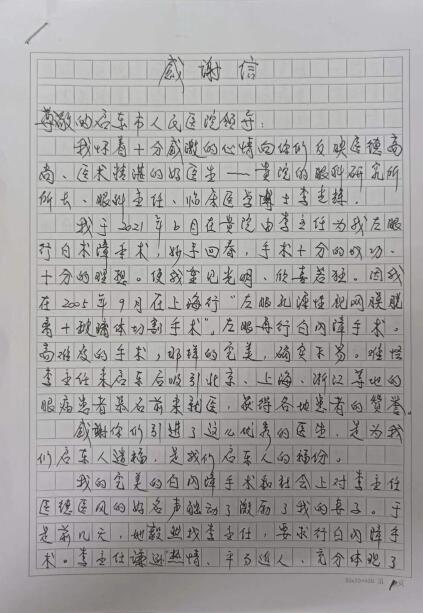 感谢信
尊敬的启东市人民医院领导:
我怀着十分感激的心情向你们反映医德高
尚、医术精湛的好医生——贵院的眼科研究所
所长、眼科主任、临床医学博士李
我于2021年6月在贵院由李主任为我左眼
行白术障手术,妙手回春,手术十分的成功、
十分的理想。使我重见光明、欣喜若狂。因我
在2005年9月在上海行“左眼孔源性视网膜脱
离+玻璃体切割手术”,左眼再行白内障手术。
高难度的手术,那样的完美,确实不易。难怪
李主任来启东后吸引北京、上海、浙江等地的
眼病患者慕名前来就医,获得各地患者的赞誉。
感谢你们引进了这么优秀的医生,是为我
们启东人造福,是我们启东人的福份。
我的完美的白内障手术和社会上对李主任
医德医风的好名声触动了激励了我的妻子。于
是前几天,她毅然找李主任,要求行白内障手
术。李主任谦逊热情、平易近人,充分体现了